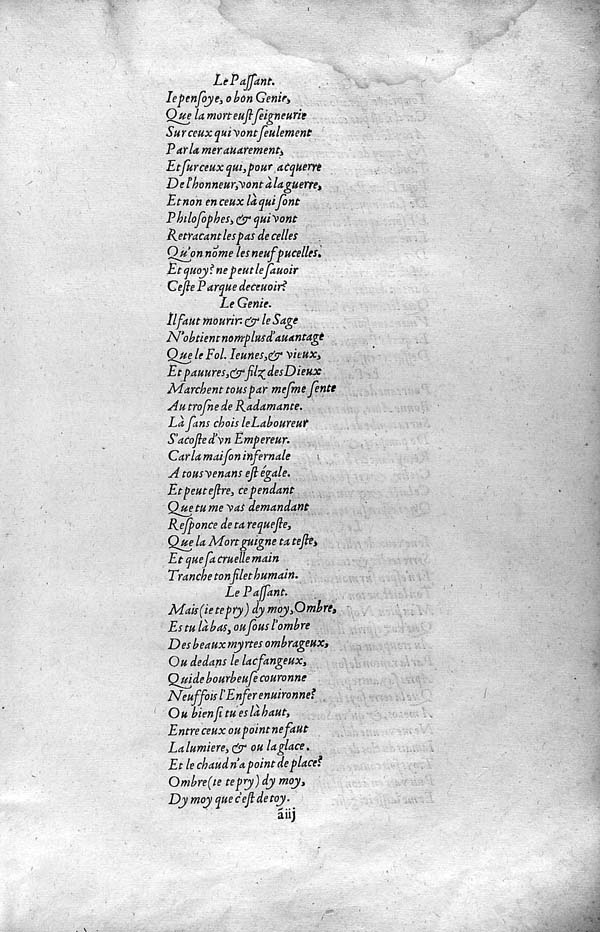 Le Paſſant.
Ie penſoye, o bon Genie,
Que la mort euſt ſeigneurie
Sur ceux qui vont ſeulement
Par la mer auarement,
Et ſur ceux qui, pour acquerre
De l'honneur, vont à la guerre,
Et non en ceux là qui ſont
Philoſophes, & qui vont
Retracant les pas de celles
Qu'on nõme les neuf pucelles.
Et quoy? ne peut le ſauoir
Ceſte Parque deceuoir?
Le Genie.
Il faut mourir: & le Sage
N'obtient nomplus d'auantage
Que le Fol. Ieunes, & vieux,
Et pauures, & filz des Dieux
Marchent tous par meſme ſente
Au troſne de Radamante.
Là ſans chois le Laboureur
S'acoſte d'vn Empereur.
Car la maiſon infernale
A tous venans eſt égale.
Et peut eſtre, ce pendant
Que tu me vas demandant
Reſponce de ta requeſte,
Que la Mort guigne ta teſte,
Et que ſa cruelle main
Tranche ton filet humain.
Le Paſſant.
Mais (ie te pry) dy moy, Ombre,
Es tu là bas, ou ſous l'ombre
Des beaux myrtes ombrageux,
Ou dedans le lac fangeux,
Qui de bourbeuſe couronne
Neuf fois l'Enfer enuironne?
Ou bien ſi tu es là haut,
Entre ceux ou point ne faut
La lumiere, & ou la glace.
Et le chaud n'a point de place?
Ombre (ie te pry) dy moy,
Dy moy que c'eſt de toy.
ãiij